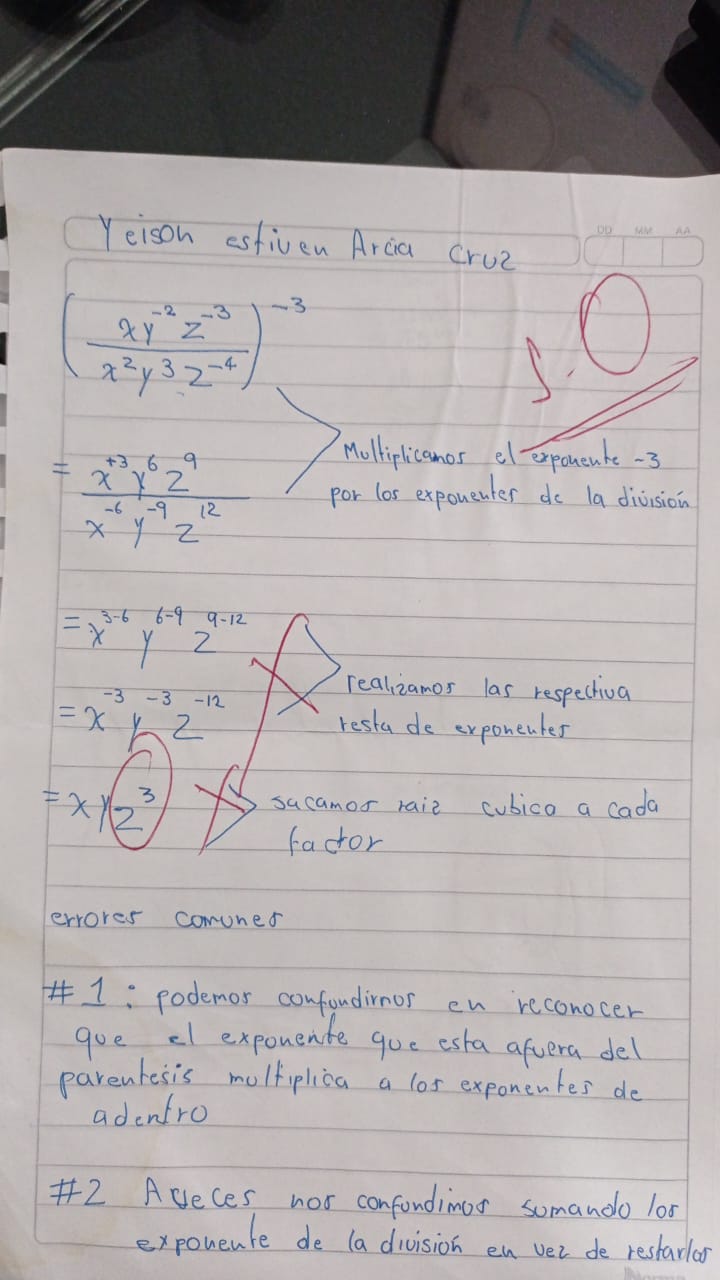 Yeison estiven Arcia Cruz
DD MM AA
5.0
(xy⁻²z⁻³ / x²y³z⁻⁴)⁻³
= x⁺³y⁶z⁹ / x⁻⁶y⁻⁹z¹²
Multiplicamos el exponente -3
por los exponentes de la división
= x³⁻⁶ y⁶⁻⁹ z⁹⁻¹²
= x⁻³ y⁻³ z⁻¹²
realizamos las respectiva
resta de exponentes
= x y z³
sacamos raiz cubica a cada
factor
errores comunes
#1: podemos confundirnos en reconocer
que el exponente que esta afuera del
parentesis multiplica a los exponentes de
adentro
#2 Aveces nos confundimos sumando los
exponente de la división en vez de restarlos